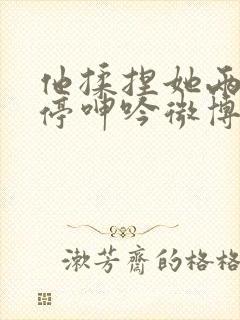 他揉捏她两
停呻吟微博
漱芳齋的格格